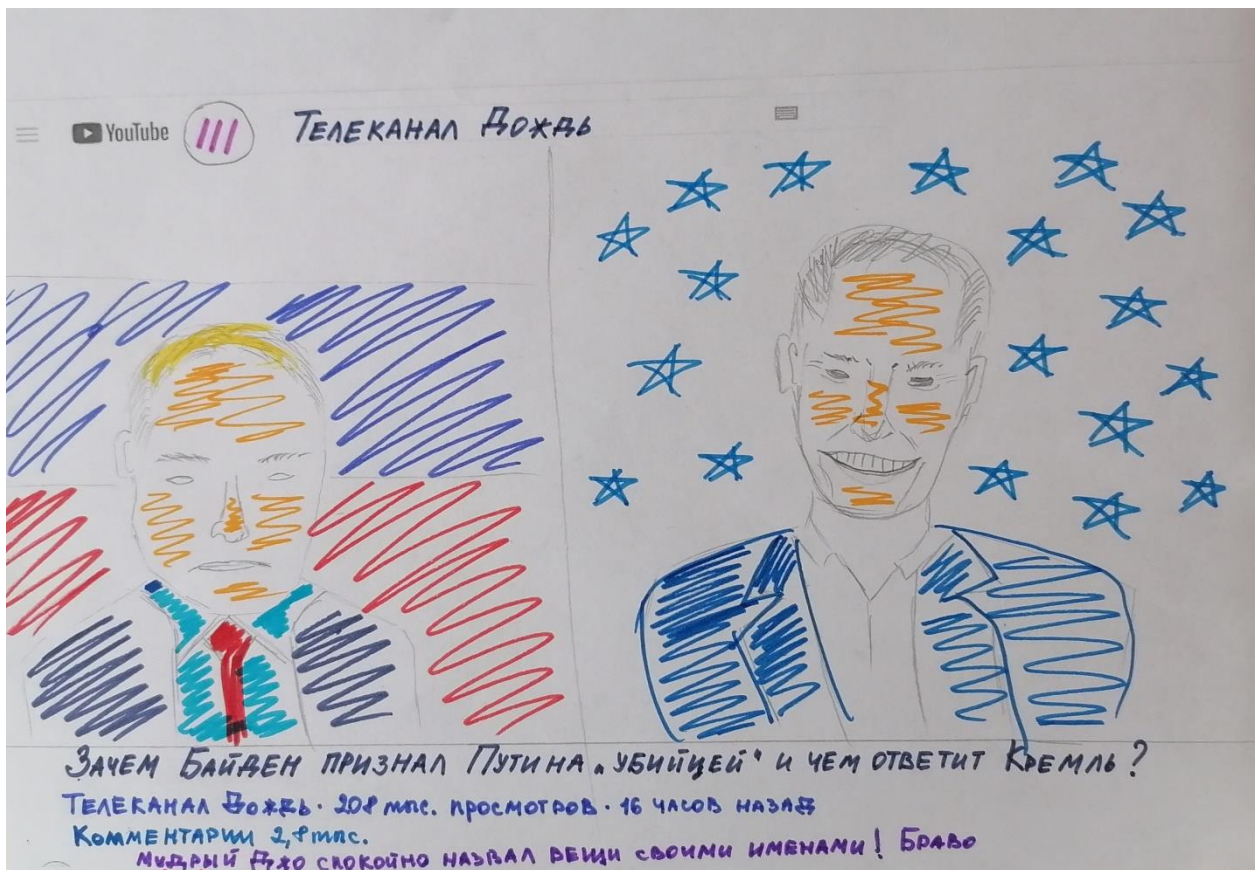 YouTube ТЕЛЕКАНАЛ ДОЖДЬ
ЗАЧЕМ БАЙДЕН ПРИЗНАЛ ПУТИНА „УБИЙЦЕЙ“ И ЧЕМ ОТВЕТИТ КРЕМЛЬ?
ТЕЛЕКАНАЛ ДОЖДЬ · 208 тыс. ПРОСМОТРОВ · 16 ЧАСОВ НАЗАД
КОММЕНТАРИИ 2,8 тыс.
МУДРЫЙ ДЖО СПОКОЙНО НАЗВАЛ ВЕЩИ СВОИМИ ИМЕНАМИ! БРАВО